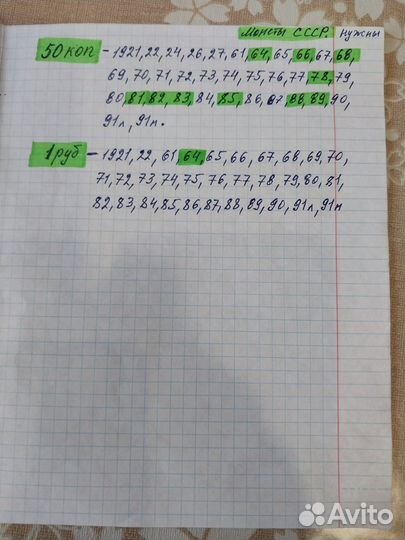 Монеты СССР. нужны
50 коп - 1921, 22, 24, 26, 27, 61, 64, 65, 66, 67, 68,
69, 70, 71, 72, 73, 74, 75, 76, 77, 78, 79,
80, 81, 82, 83, 84, 85, 86, 87, 88, 89, 90,
91л, 91м.
1 руб - 1921, 22, 61, 64, 65, 66, 67, 68, 69, 70,
71, 72, 73, 74, 75, 76, 77, 78, 79, 80, 81,
82, 83, 84, 85, 86, 87, 88, 89, 90, 91л, 91м
Avito